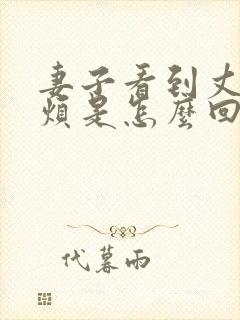 妻子看到丈
煩是怎麼回
代暮雨